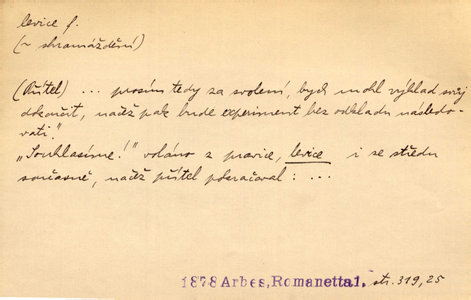 levice f.
(~ shromáždění)
(Přítel) ... prosím tedy za svolení, bych mohl výklad svůj
dokončit, načež pak bude experiment bez odkladu následo-
vati."
„Souhlasíme!" voláno z pravice, levice i se středu
současně, načež přítel pokračoval: ...
1878 Arbes, Romanetta1. str. 319, 25